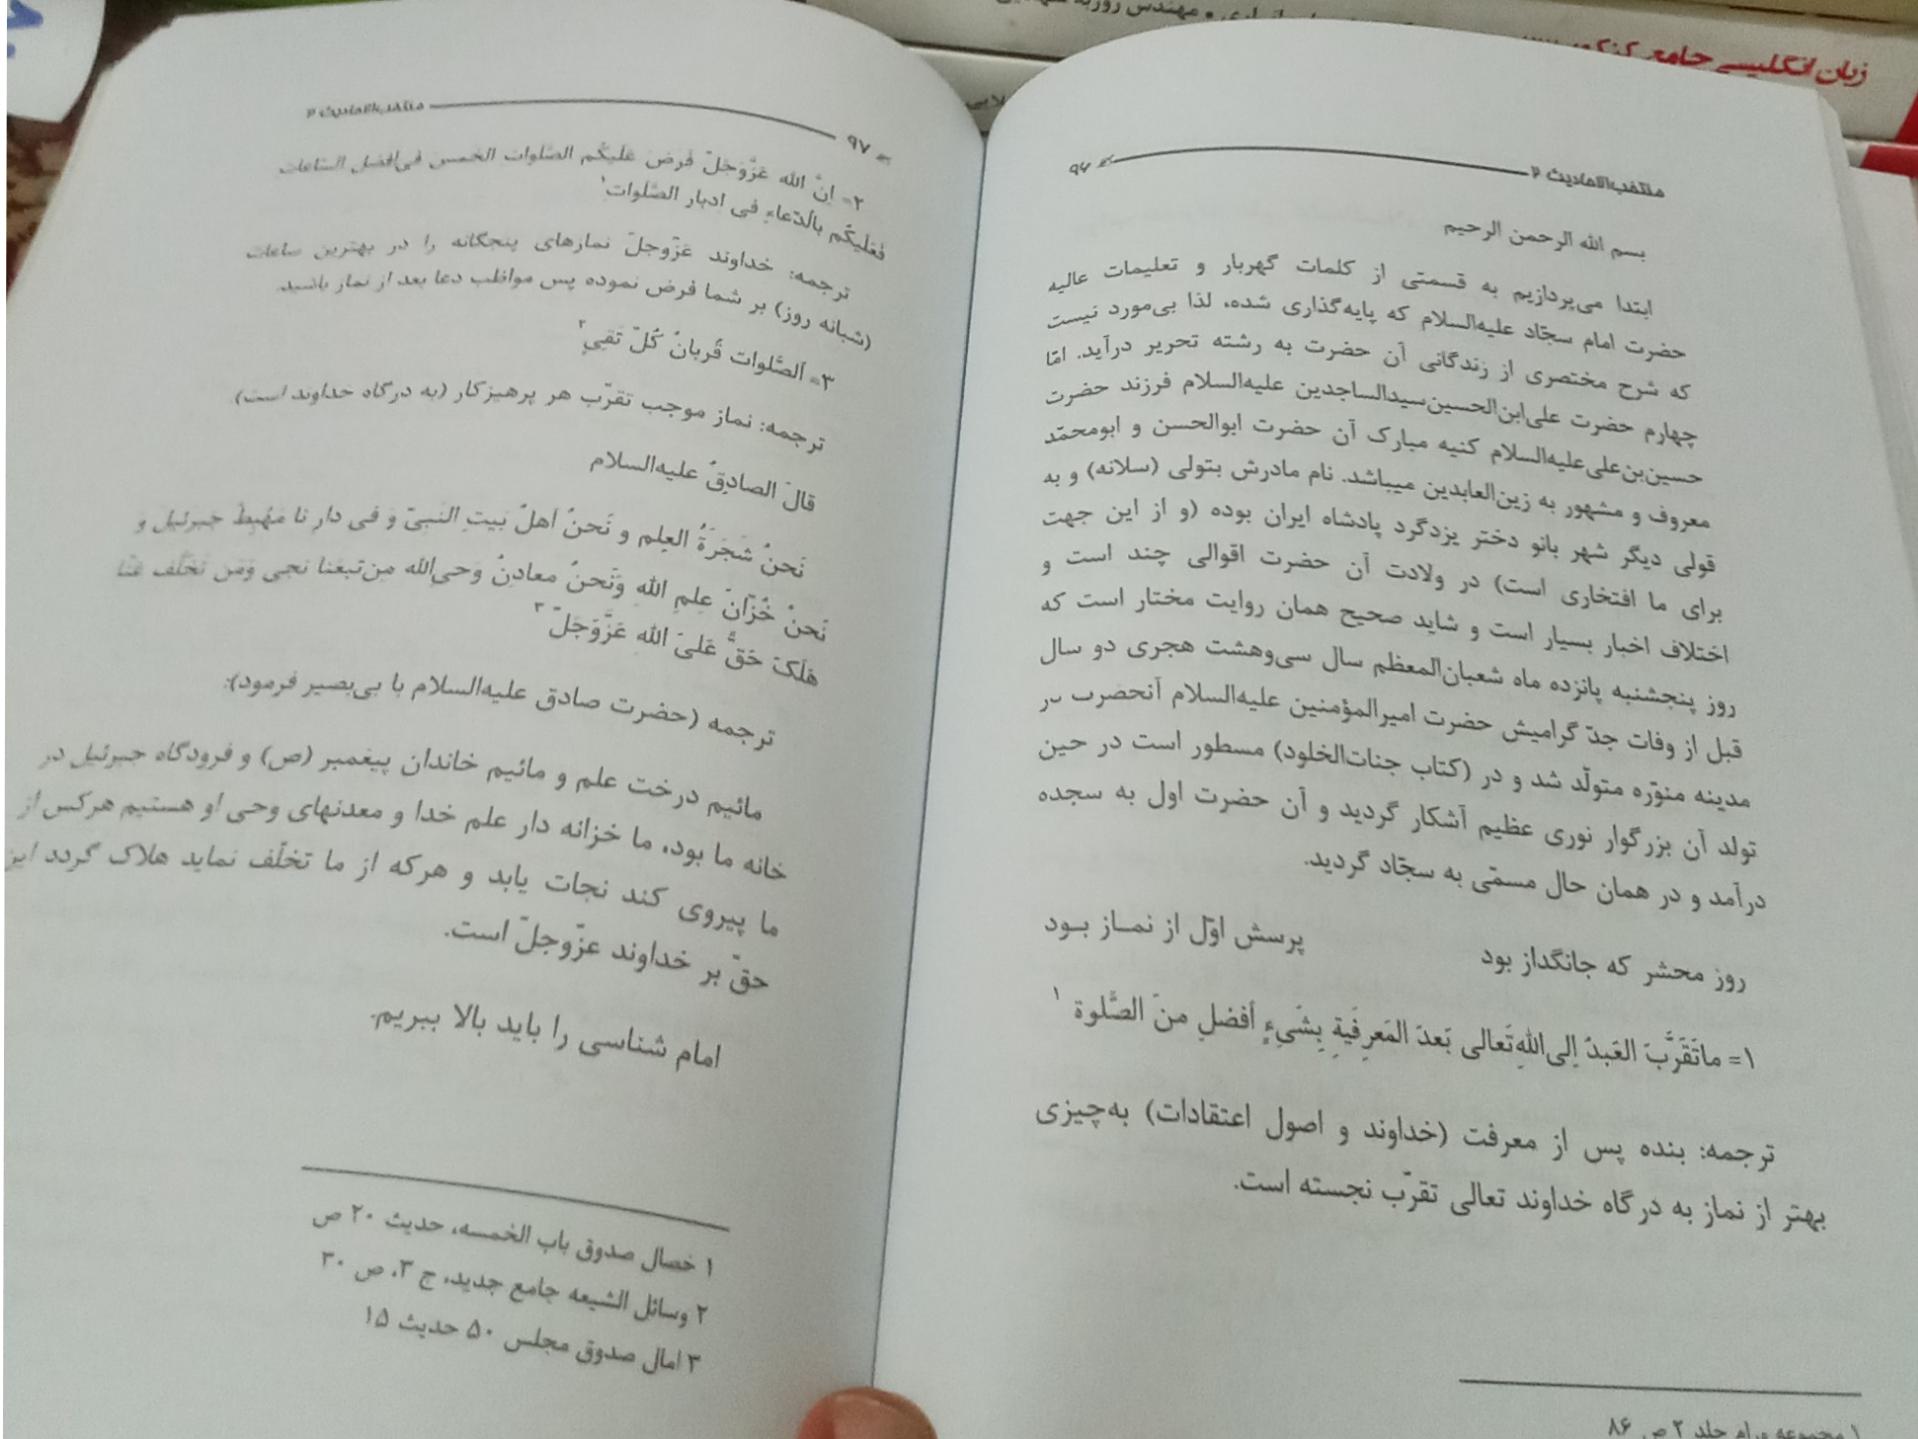 زبان انگلیسی جامع کنکور
مهندس روزبه
منتخب‌الاحادیث ۲
۹۶
بسم الله الرحمن الرحیم
ابتدا می‌پردازیم به قسمتی از کلمات گهربار و تعلیمات عالیه
حضرت امام سجّاد علیه‌السلام که پایه‌گذاری شده، لذا بی‌مورد نیست
که شرح مختصری از زندگانی آن حضرت به رشته تحریر درآید. امّا
چهارم حضرت علی‌ابن‌الحسین‌سیدالساجدین علیه‌السلام فرزند حضرت
حسین‌بن‌علی‌علیه‌السلام کنیه مبارک آن حضرت ابوالحسن و ابومحمّد
معروف و مشهور به زین‌العابدین میباشد. نام مادرش بتولی (سلانه) و به
قولی دیگر شهر بانو دختر یزدگرد پادشاه ایران بوده (و از این جهت
برای ما افتخاری است) در ولادت آن حضرت اقوالی چند است و
اختلاف اخبار بسیار است و شاید صحیح همان روایت مختار است که
روز پنجشنبه پانزده ماه شعبان‌المعظم سال سی‌وهشت هجری دو سال
قبل از وفات جدّ گرامیش حضرت امیرالمؤمنین علیه‌السلام آنحضرت در
مدینه منوّره متولّد شد و در (کتاب جنات‌الخلود) مسطور است در حین
تولد آن بزرگوار نوری عظیم آشکار گردید و آن حضرت اول به سجده
درآمد و در همان حال مسمّی به سجّاد گردید.
روز محشر که جانگداز بود پرسش اوّل از نمـاز بـود
۱= ماتَقَرَّبَ العَبدُ اِلی‌اللهِ‌تَعالی بَعدَ المَعرِفَیةِ بِشَیءٍ أفضلِ مِنَ الصَّلوة ۱
ترجمه: بنده پس از معرفت (خداوند و اصول اعتقادات) به‌چیزی
بهتر از نماز به درگاه خداوند تعالی تقرّب نجسته است.
۱ مجموعه ورام جلد ۲ ص ۸۶
۹۷
منتخب‌الاحادیث ۲
۲= اِنَّ الله عَزَّوَجَلّ فَرَضَ عَلَیکُم الصَّلوات الخمس فی‌افضل السّاعات
فَعَلَیکُم بالدّعاءِ فی ادبار الصَّلوات۱
ترجمه: خداوند عَزّوجلّ نمازهای پنجگانه را در بهترین ساعات
(شبانه روز) بر شما فرض نموده پس مواظب دعا بعد از نماز باشید.
۳= اَلصَّلوات قُربانُ کُلّ تَقیٍ۲
ترجمه: نماز موجب تقرّب هر پرهیزکار (به درگاه خداوند است).
قالَ الصادِقُ علیه‌السلام
نَحنُ شَجَرَةُ العِلم و نَحنُ اَهلُ بَیتِ النَبیّ و فی دارِ نا مَهبِطُ جبرئیل و
نَحنُ خُزّانَ عِلمِ اللهِ وَنَحنُ معادِنُ وَحیِ‌الله مِن‌تبعَنا نَجی وَمَن تَخَلّف عَنّا
هَلَکَ حَقَّ عَلیَ اللهِ عَزَّوَجَلّ ۳
ترجمه (حضرت صادق علیه‌السلام با بی‌بصیر فرمود):
مائیم درخت علم و مائیم خاندان پیغمبر (ص) و فرودگاه جبرئیل در
خانه ما بود، ما خزانه دار علم خدا و معدنهای وحی او هستیم هرکس از
ما پیروی کند نجات یابد و هرکه از ما تخلّف نماید هلاک گردد این
حقّ بر خداوند عزّوجلّ است.
امام شناسی را باید بالا ببریم.
۱ خصال صدوق باب الخمسه، حدیث ۲۰ ص
۲ وسائل الشیعه جامع جدید، ج ۳، ص ۳۰
۳ امال صدوق مجلس ۵۰ حدیث ۱۵